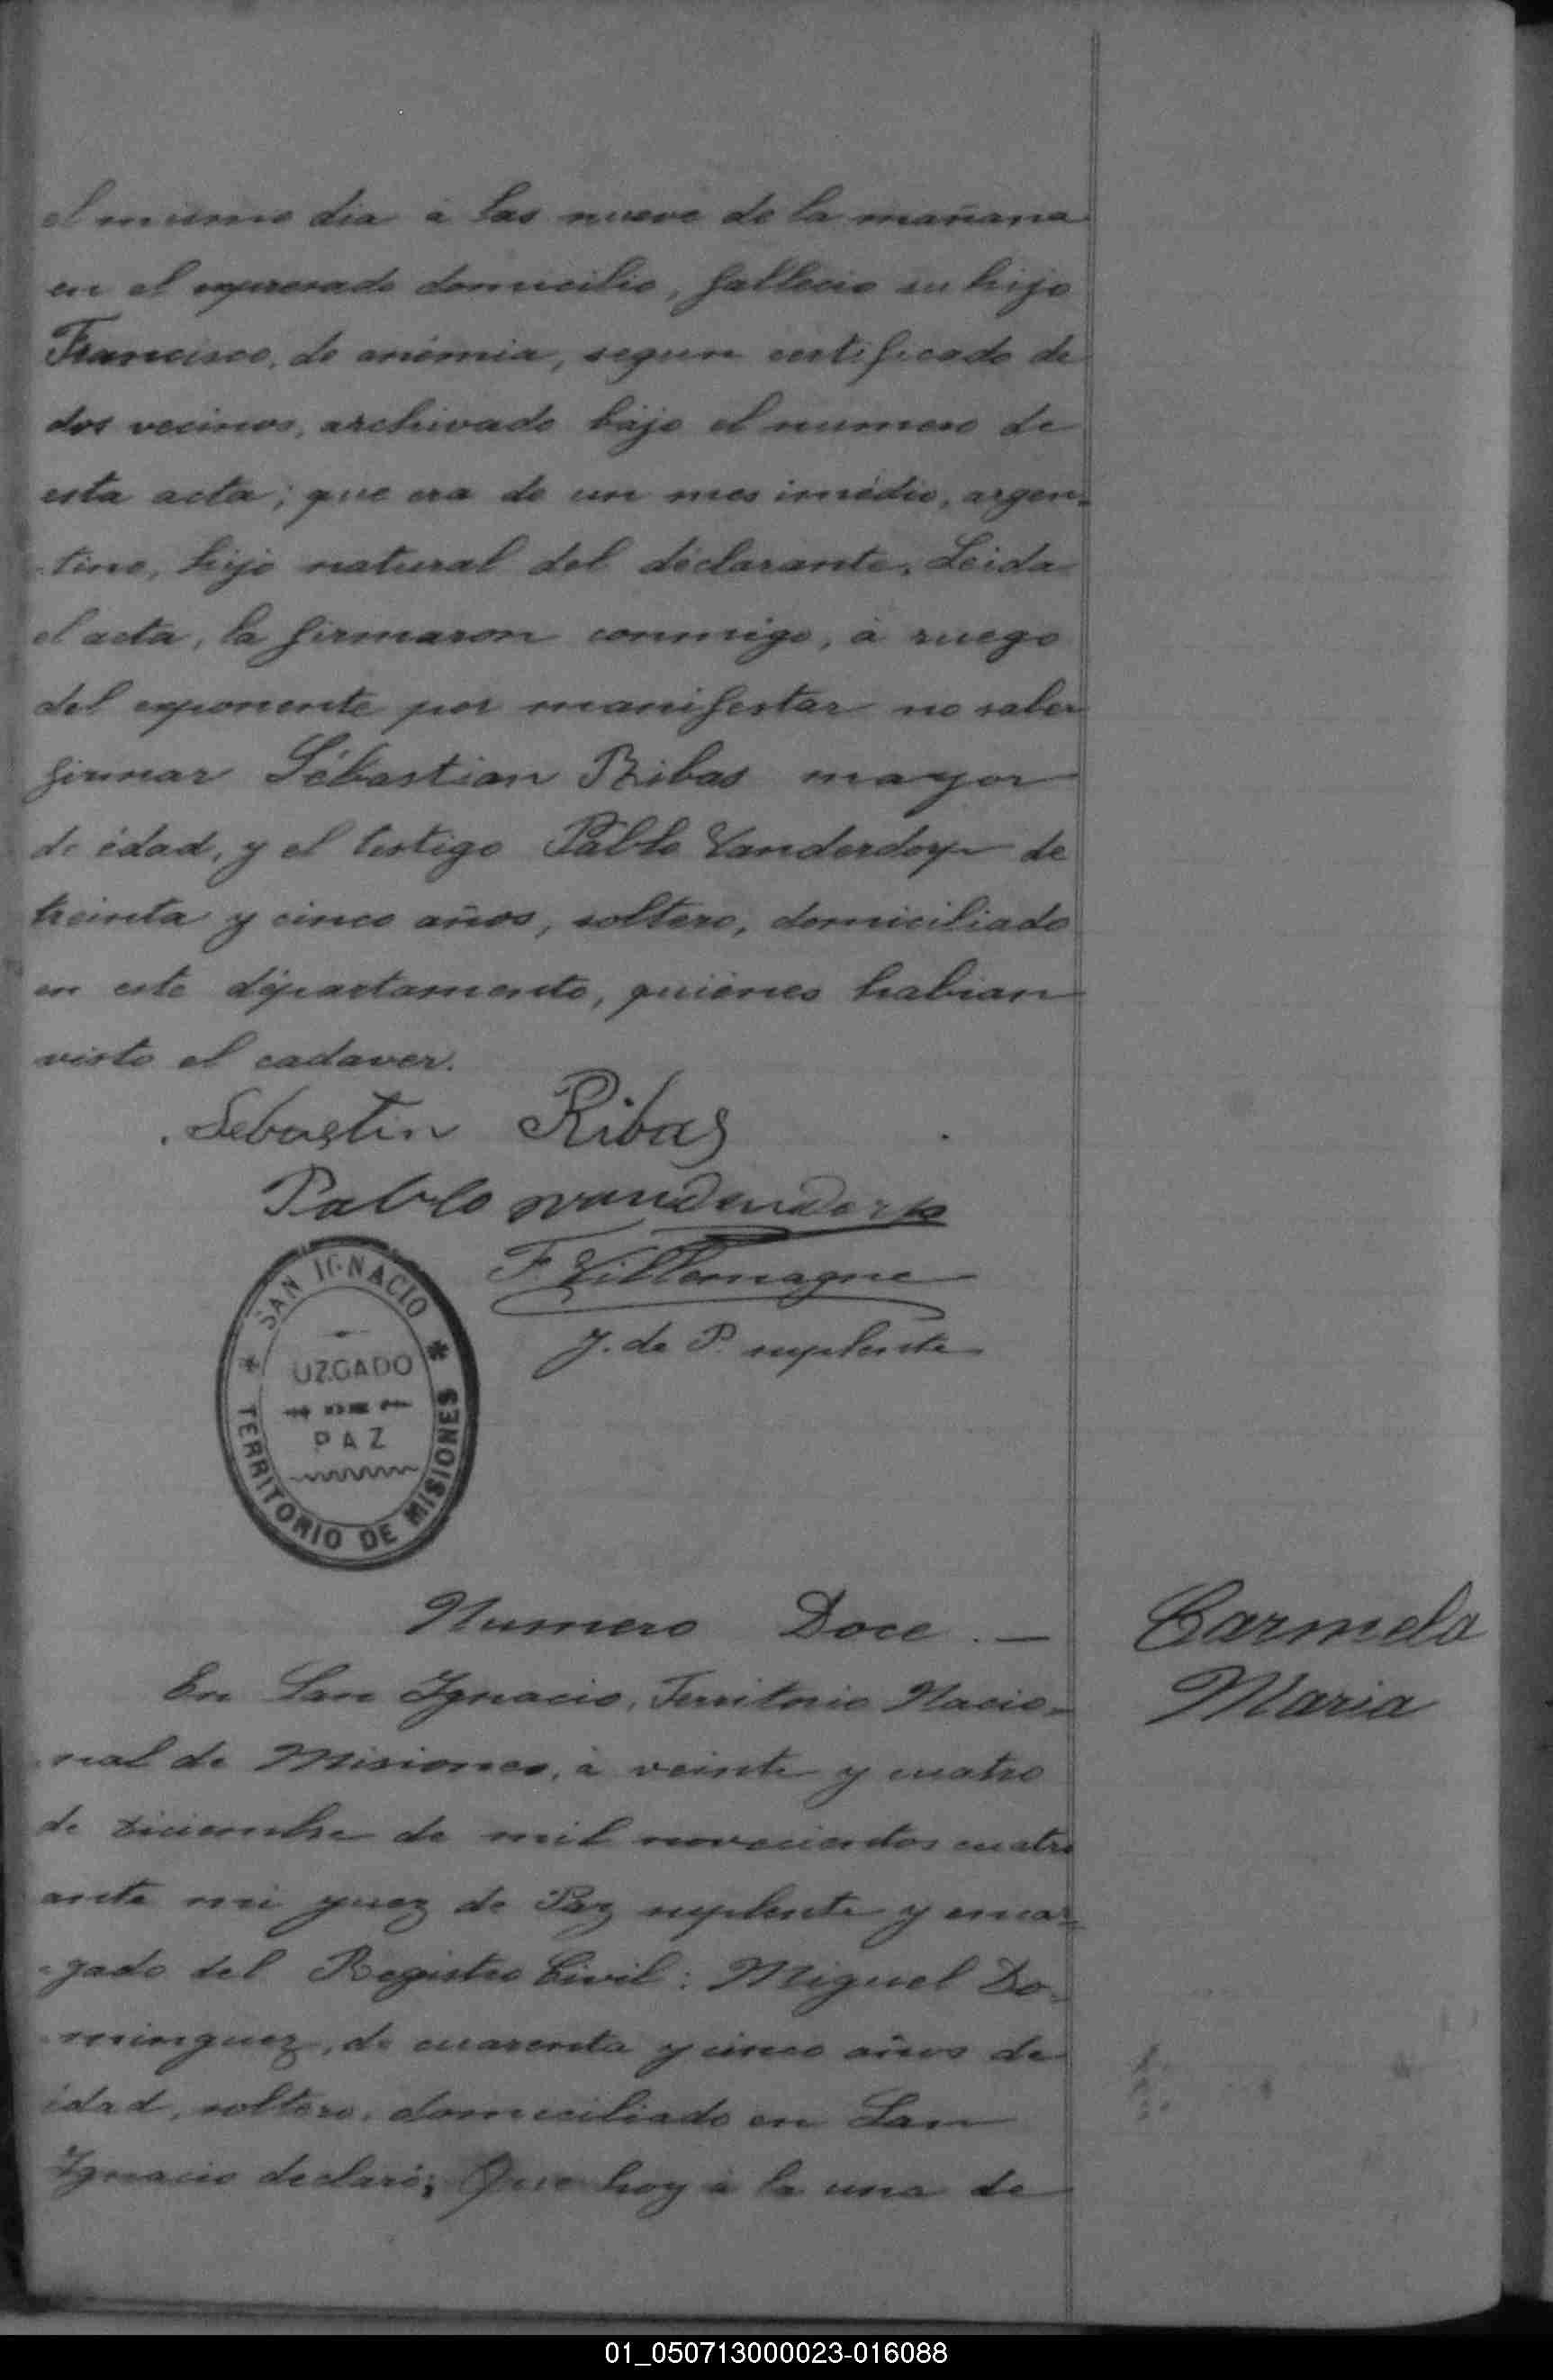 el mismo dia á las nueve de la mañana
en el expresado domicilio, fallecio su hijo
Francisco, de anémia, segun certificado de
dos vecinos, archivado bájo el numero de
esta acta; que era de un mes imédio, argen-
-tino, hijo natural del declarante. Leida
el acta, la firmaron conmigo, á ruego
del exponente por manifestar no saber
firmar Sébastian Ribas mayor
de édad, y el testigo Pablo Vanderdorp de
treinta y cinco años, soltero, domiciliado
en este département​o, quiénes habian
visto el cadaver.
Sebastin Ribas
Pablo Vandendorp
F. Villemagne
J. de P. suplente
SAN IGNACIO
UZGADO
DE
PAZ
TERRITORIO DE MISIONES
Numero Doce. —
Carmela
Maria
En San Ignacio, Territorio Nacio-
-nal de Misiones, á veinte y cuatro
de Diciembre de mil novecientos cuatro
ante mi juez de Paz suplente y encar-
-gado del Registro Civil: Miguel Do-
-minguez, de cuarenta y cinco años de
édad, soltero, domiciliado en San
Ignacio declaró; Que hoy á la una de
01_050713000023-016088